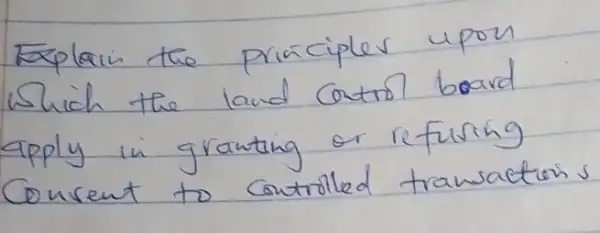 Explain the principles upon
which the land Control board
apply in granting or refusing
Consent to Controlled transactions